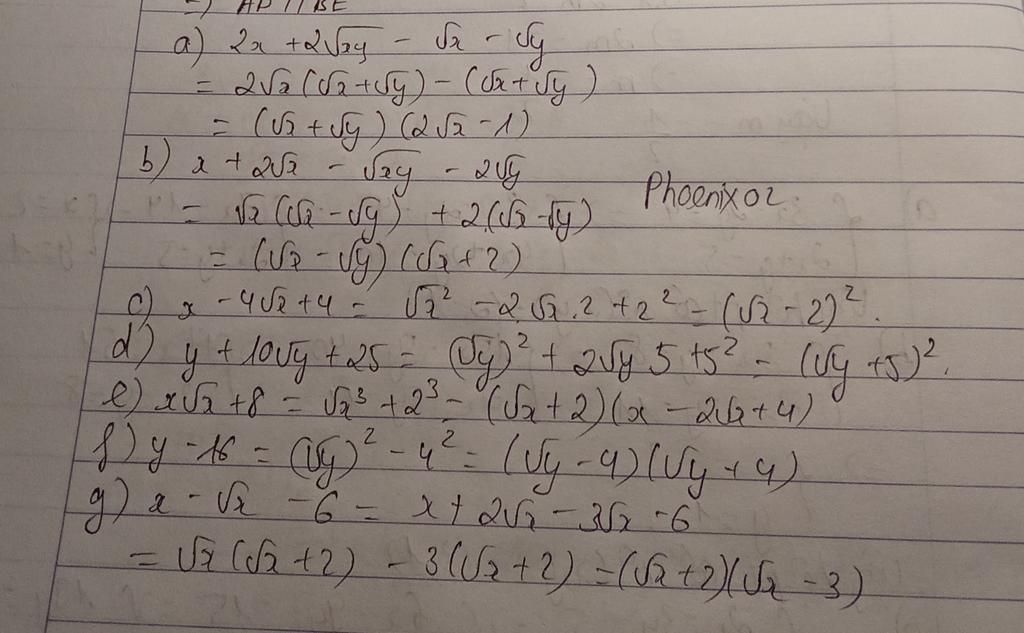 =) AD // BE
a) 2x + 2√xy - √x - √y
= 2√x (√x + √y) - (√x + √y)
= (√x + √y) (2√x - 1)
b) x + 2√x - √xy - 2√y
Phoenix02
= √x (√x - √y) + 2.(√x - √y)
= (√x - √y) (√x + 2)
c) x - 4√x + 4 = √x² - 2√x.2 + 2² = (√x - 2)².
d) y + 10√y + 25 = (√y)² + 2√y 5 + 5² = (√y + 5)².
e) x√x + 8 = √x³ + 2³ = (√x + 2)(x - 2√x + 4)
f) y - 16 = (√y)² - 4² = (√y - 4)(√y + 4)
g) x - √x - 6 = x + 2√x - 3√x - 6
= √x (√x + 2) - 3(√x + 2) = (√x + 2)(√x - 3)